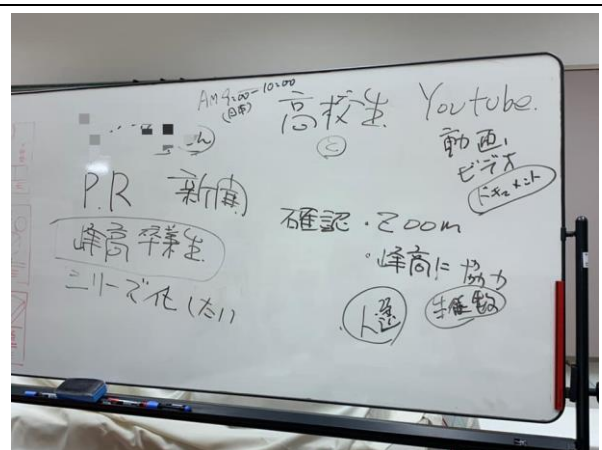 AM 9:00-10:00
(日本)
高校生
Youtube.
動画,
ビデオ
ドキュメント
さん
P.R 新聞
峰高 卒業生
シリーズ化したい
確認・Zoom
・峰高に協力
人選